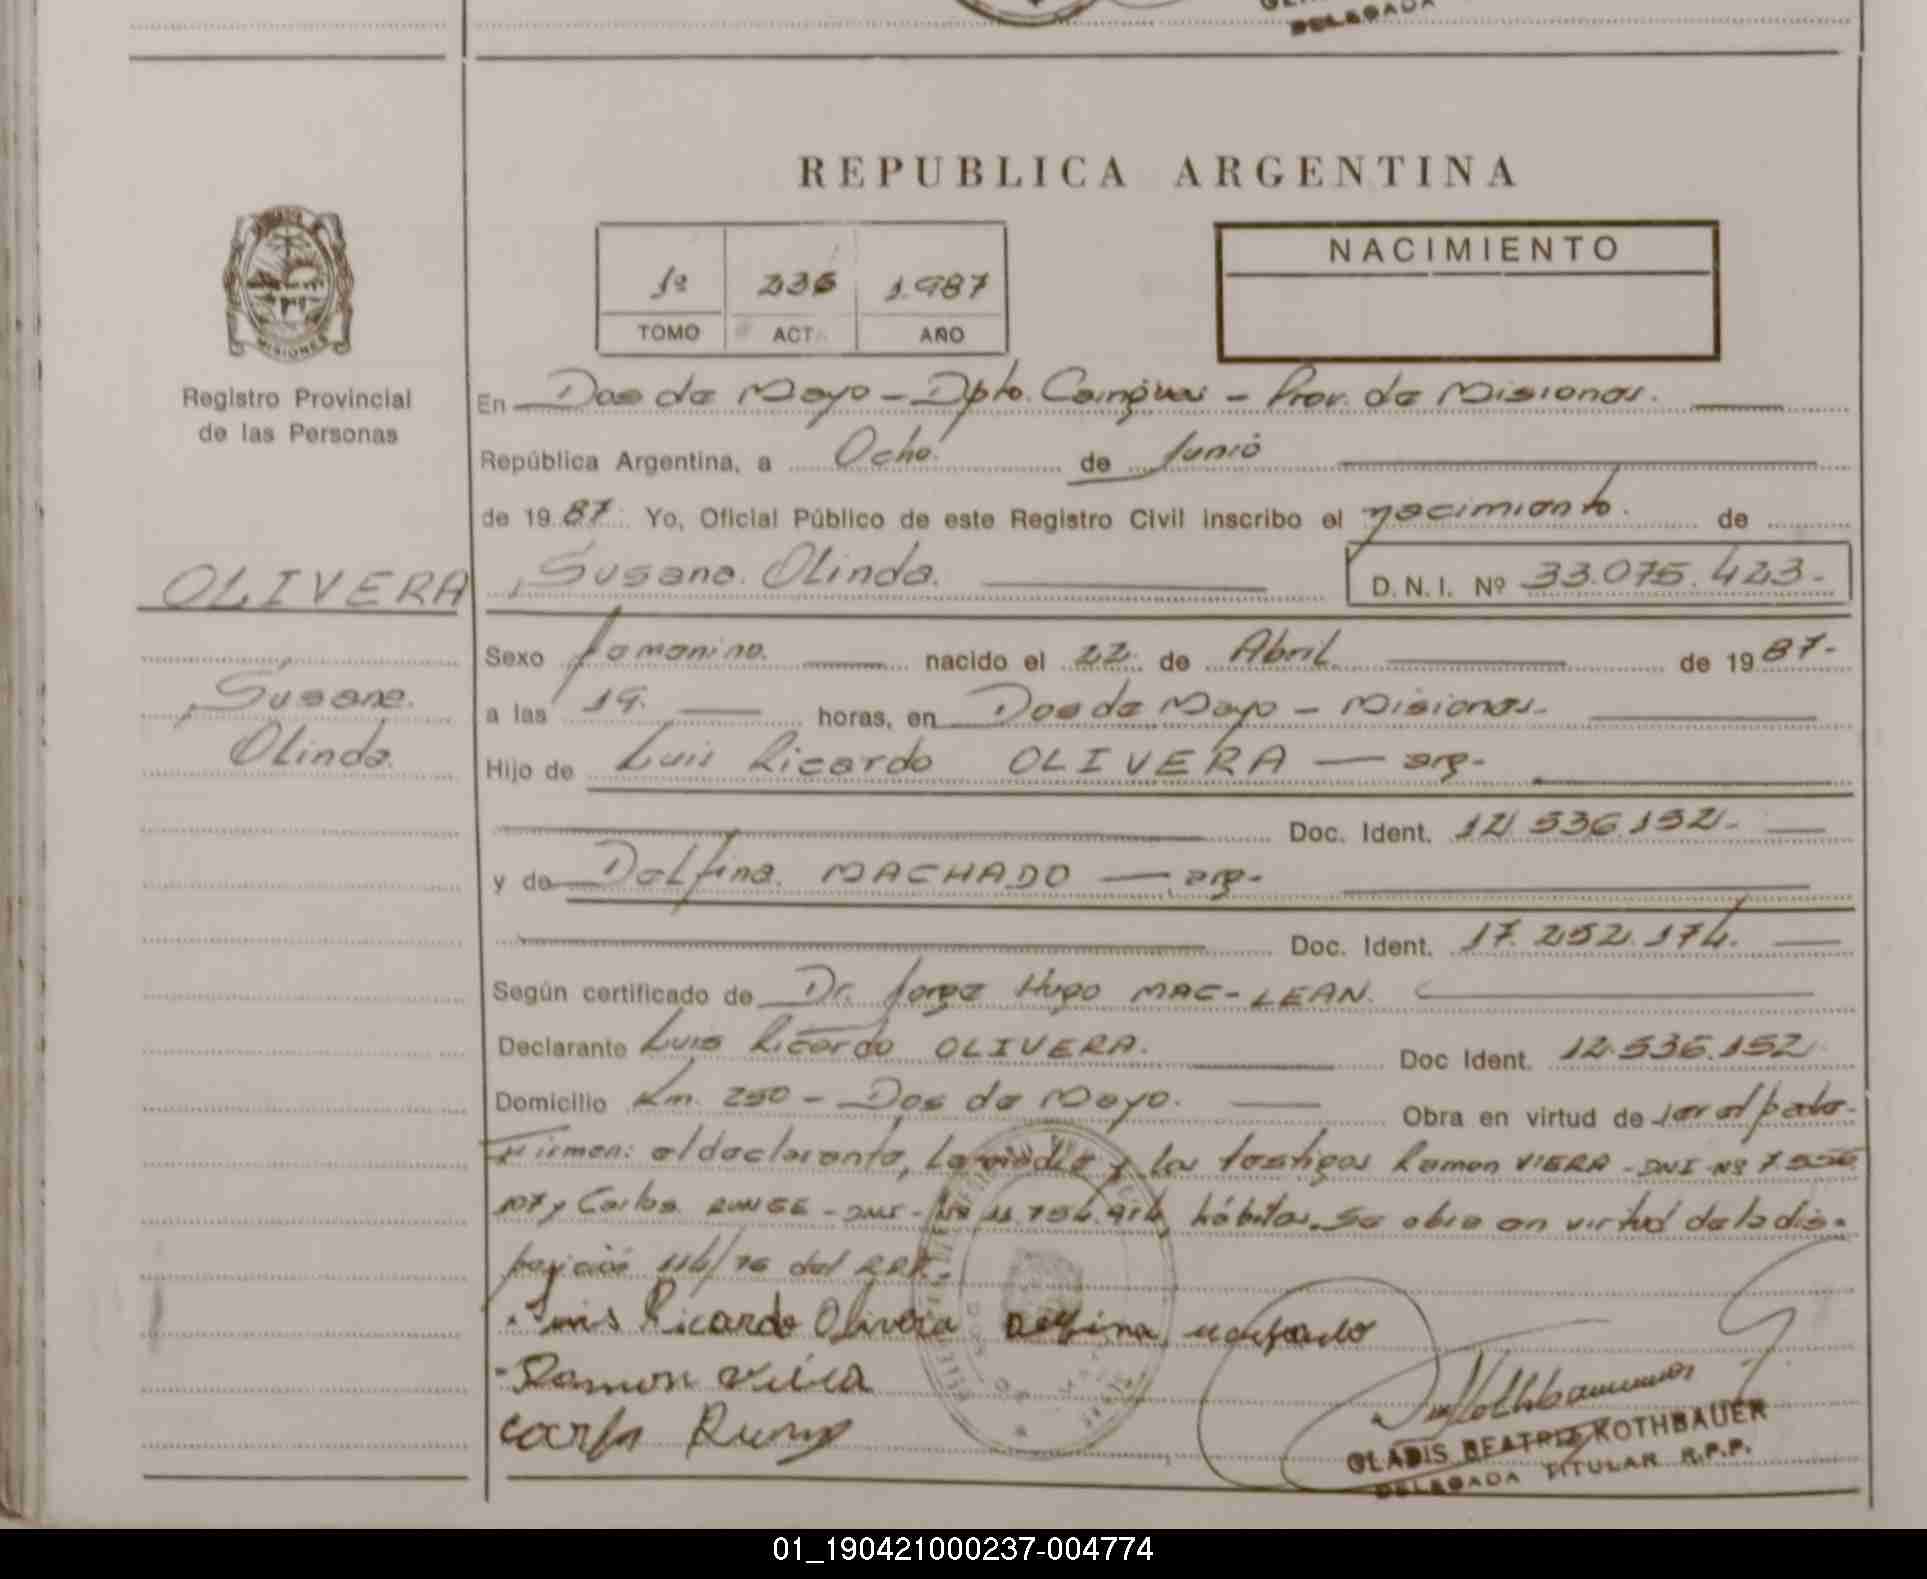 DELEGADA
REPUBLICA ARGENTINA
NACIMIENTO
1º 236 1.987
TOMO ACTA AÑO
MISIONES
Registro Provincial
de las Personas
En Dos de Mayo - Dpto. Cainguas - Prov. de Misiones.
República Argentina, a Ocho de Junio
de 1987 Yo, Oficial Público de este Registro Civil inscribo el nacimiento. de
OLIVERA, Susana. Olinda. D.N.I. Nº 33.075.423.-
Susana.
Olinda.
Sexo femenino. nacido el 22 de Abril. de 1987.-
a las 19. horas, en Dos de Mayo - Misiones.-
Hijo de Luis Ricardo OLIVERA — arg.-
Doc. Ident. 12.536.152.-
y de Delfina. MACHADO — arg.-
Doc. Ident. 17.252.174.
Según certificado de Dr. Jorge Hugo MAC-LEAN.
Declarante Luis Ricardo OLIVERA. Doc Ident. 12.536.152
Domicilio Km. 250 - Dos de Mayo. Obra en virtud de ser el padre.-
Firman: el declarante, la madre y los testigos Ramon VIERA - DNI-Nº 7.556
107 y Carlos RUNGE - DNI - Nº 11.754.914 hábiles. Se obra en virtud de la dis-
posición 114/76 del RPP.-
Luis Ricardo Olivera Delfina Machado
Ramon Vieira
Carlos Runge
GLADIS BEATRIZ KOTHBAUER
DELEGADA TITULAR R.P.P.
01_190421000237-004774